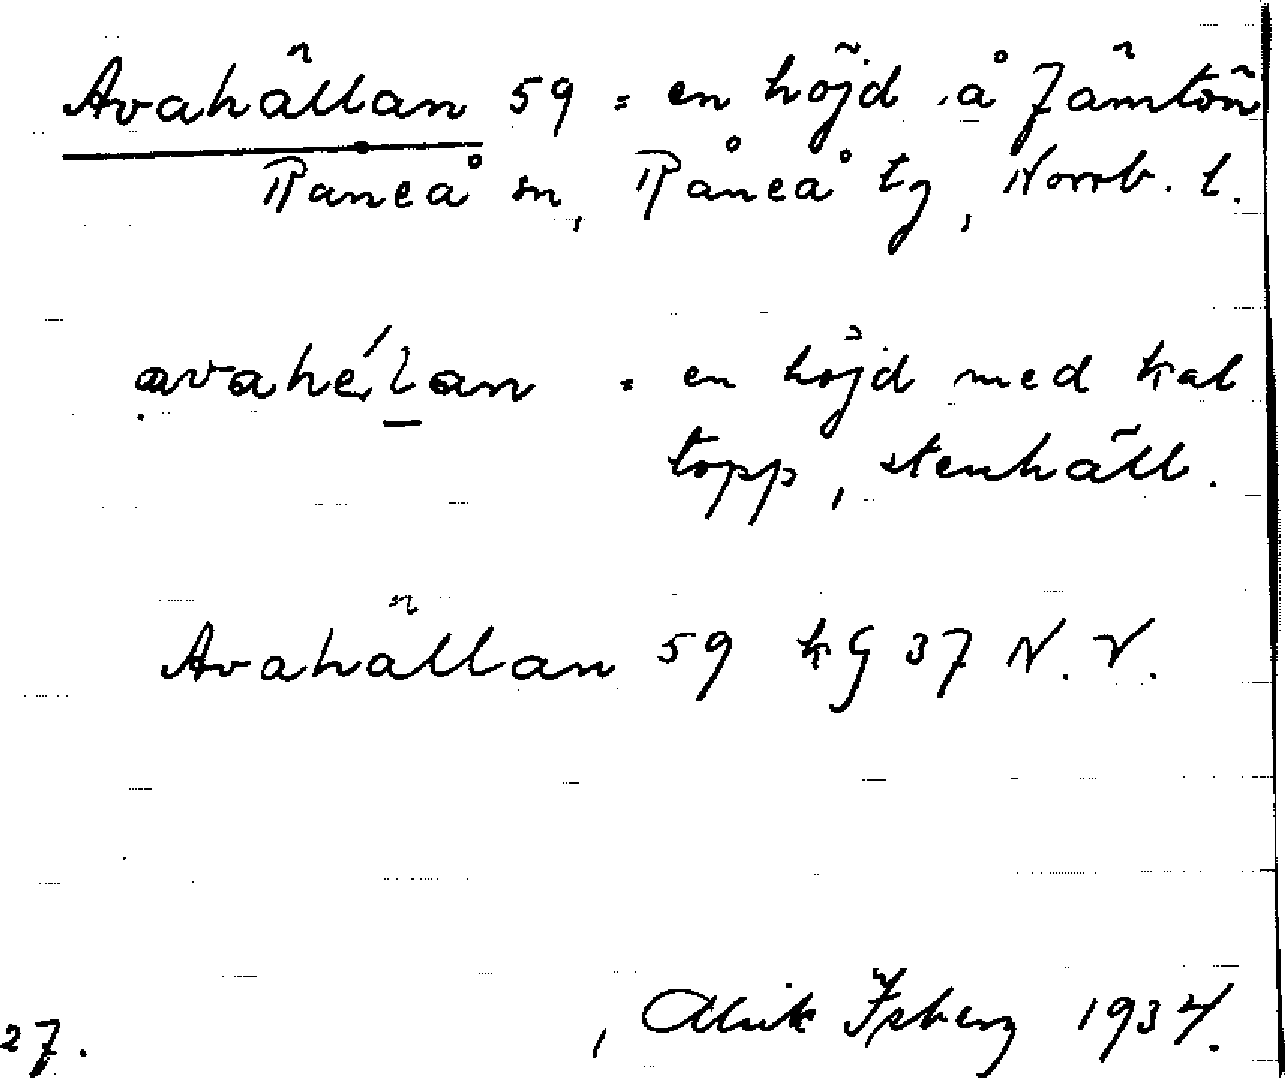 Avahällan 59 = en höjd å Jämtön
Råneå sn, Råneå tg, Norrb. l.
avahél̲an = en höjd med kal
topp, stenhäll.
Avahällan 59 kg 37 N. V.
27. Alrik Isberg 1934.